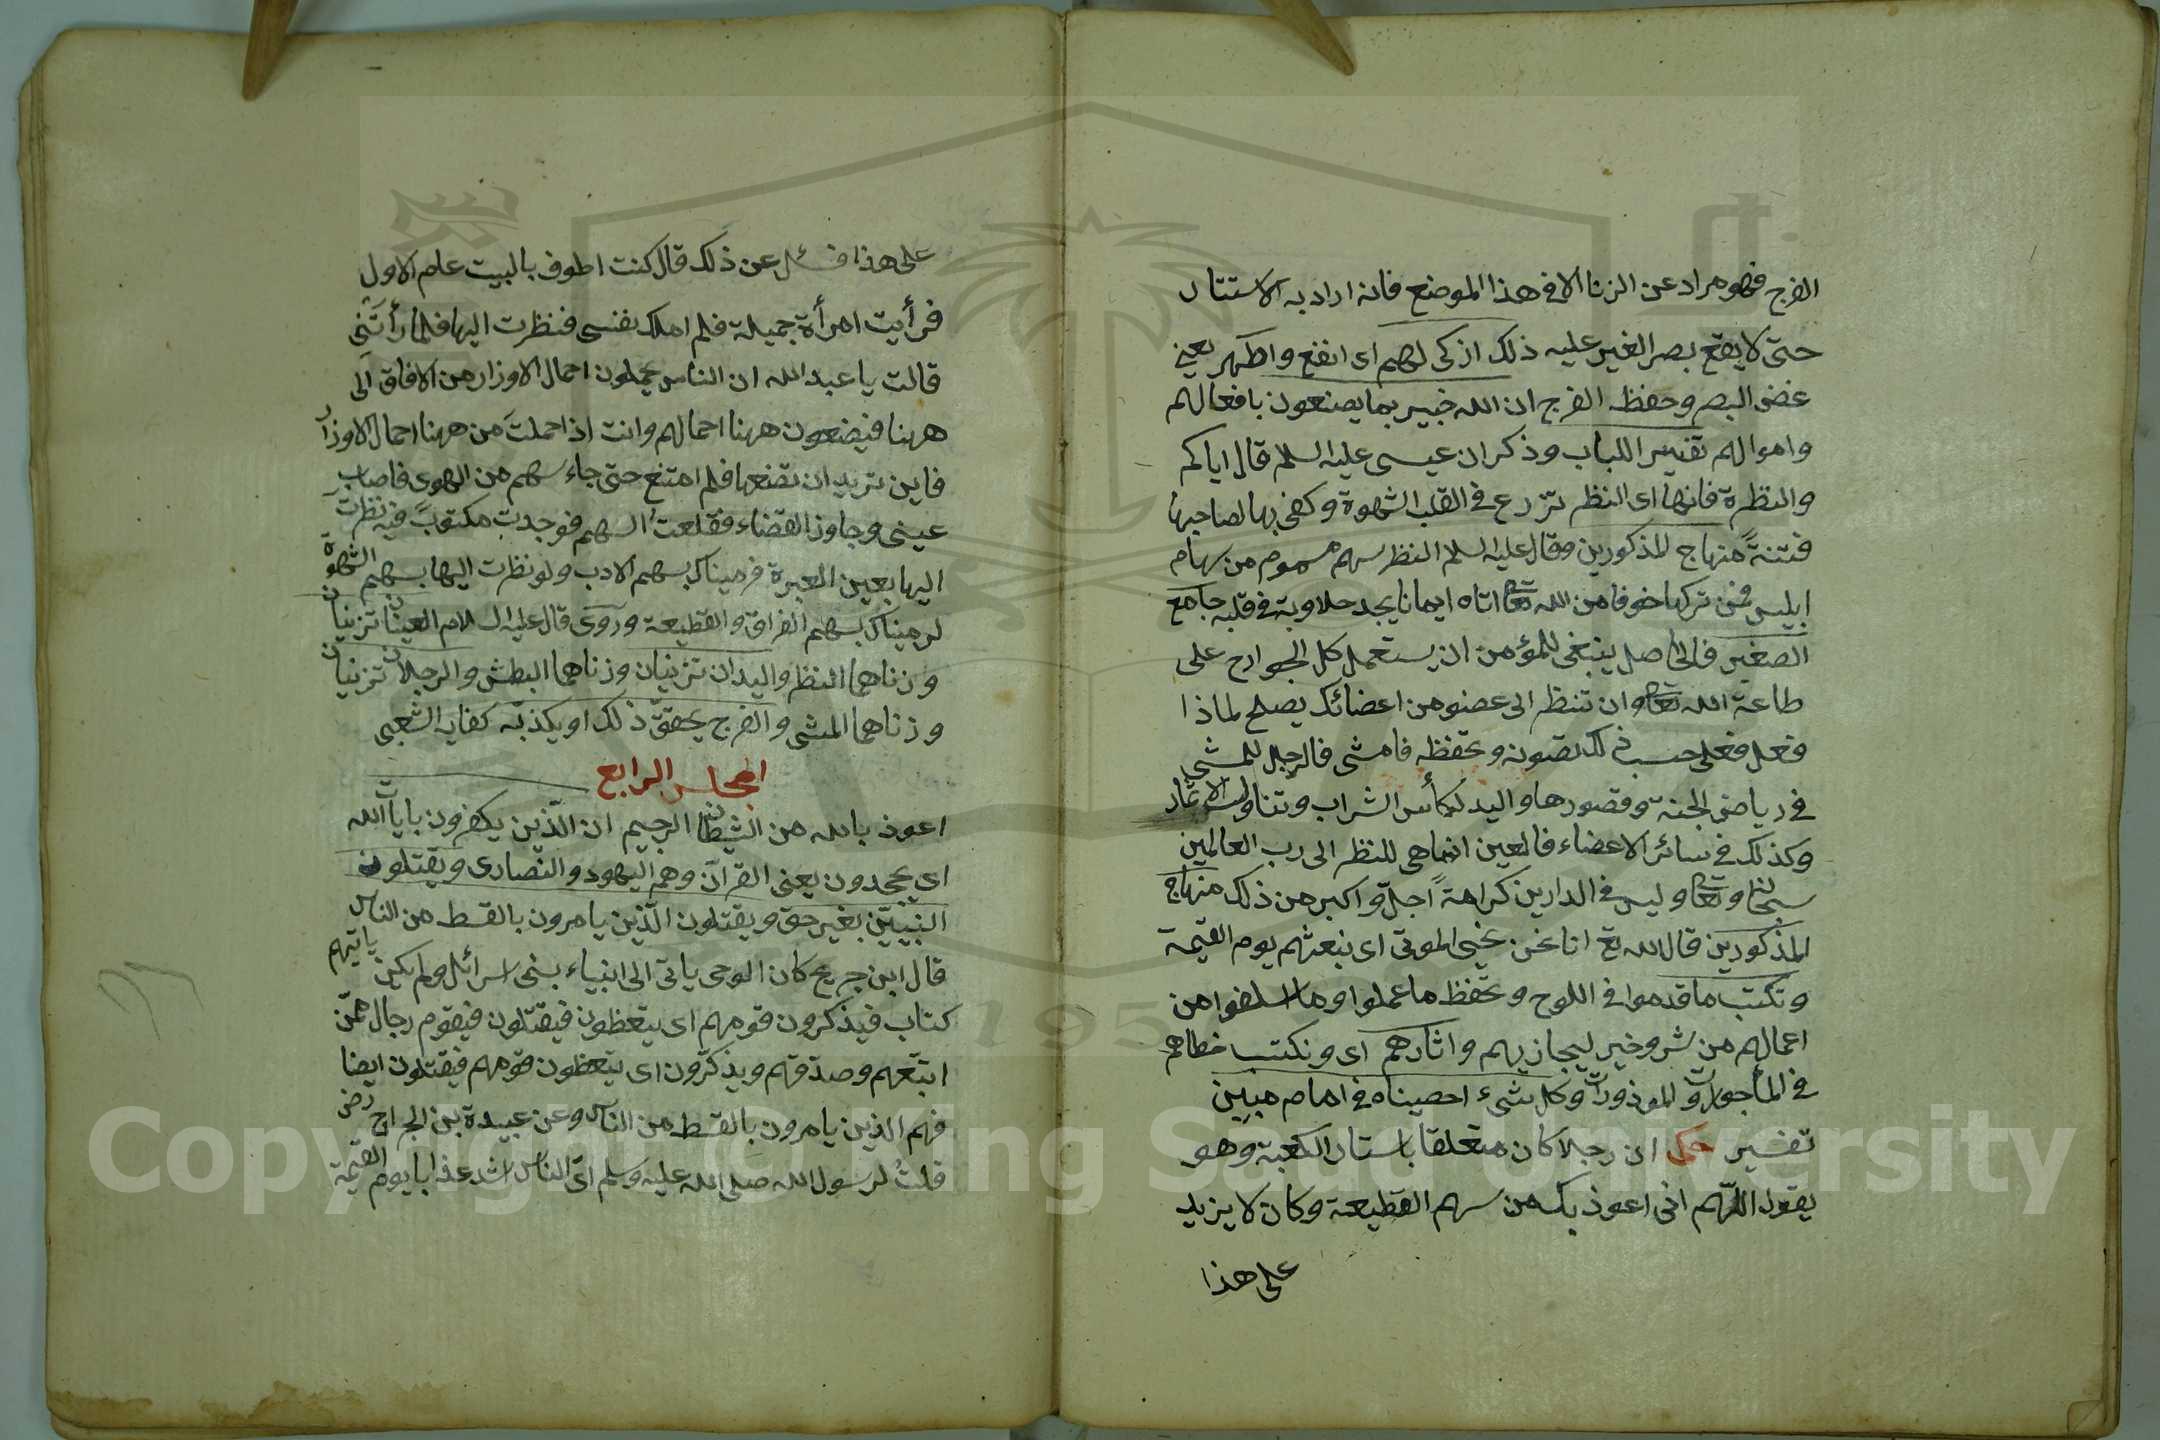 الفرج فهو مراد عن الزنا الا في هذا الموضع فانه اراد به الاستتار
حتى لا يقع بصر الغير عليه ذلك ازكى لهم اى انفع واطهر يعني
غض البصر وحفظ الفرج ان الله خبير بما يصنعون بافعالهم
واموالهم تفسير اللباب وذكر ان عيسى عليه السلم قال اياكم
والنظرة فانها اى النظر تزرع في القلب الشهوة وكفى بها لصاحبها
فتنةً منهاج المذكورين وقال عليه السلم النظر سهم مسموم من سهام
ابليس فمن تركها خوفا من الله تعا اتاه ايمانا يجد حلاوته في قلبه جامع
الصغير فالحاصل ينبغي للمؤمن ان يستعمل كل الجوارح على
طاعة الله تعا وان تنظر الى عضو من اعضائك يصلح لماذا
فعل فعلى حسب ذلك تصونه وتحفظه فامشى فالرجل للمشي
في رياض الجنة وقصورها واليد لكأس الشراب وتناول الاثمار
وكذلك في سائر الاعضاء فالعين انما هي للنظر الى رب العالمين
سبحانه وتعا وليس في الدارين كرامةً اجلّ واكبر من ذلك منهاج
المذكورين قال الله تع انا نحن نحيي الموتى اى نبعثهم يوم القيمة
ونكتب ما قدموا في اللوح ونحفظ ما عملوا وما اسلفوا من
اعمالهم من شر وخير ليجازيهم واثارهم اى ونكتب خطاهم
في المأجورات والموزورات وكل شىء احصيناه في امام مبين
تفسير حكى ان رجلا كان متعلقا باستار الكعبة وهو
يقول اللّهم انى اعوذ بك من سهم القطيعة وكان لا يزيد
على هذا
على هذا فسئل عن ذلك قال كنت اطوف بالبيت عام الاول
فرأيت امرأة جميلة فلم املك نفسى فنظرت اليها فلما رأتني
قالت يا عبد الله ان الناس يحملون احمال الاوزار من الافاق الى
ههنا فيضعون ههنا احمالهم وانت اذا حملتَ من ههنا احمال الاوزار
فاين تريد ان تضعها فلم امتنع حتى جاء سهم من الهوى فاصاب
عينى وجاوز القضاء فقلعتُ السهم فوجدت مكتوبً فيه نظرت
اليها بعين العبرة فرميناك بسهم الادب ولو نظرت اليها بسهم الشهوة
لرميناك بسهم الفراق والقطيعة وروى قال عليه السلام العينان تزنيان
وزناهما النظر واليدان تزنيان وزناهما البطش والرجلان تزنيان
وزناهما المشي والفرج يحقق ذلك او يكذبه كفاية الشعبى
المجلس الرابع
اعوذ بالله من الشيطان الرجيم ان الذين يكفرون بايات الله
اى يجحدون يعنى القرآن وهم اليهود والنصارى ويقتلون
النبيّين بغير حق ويقتلون الّذين يامرون بالقسط من الناس
قال ابن جريح كان الوحى ياتى الى انبياء بنى اسرائل ولم يكن ياتيهم
كتاب فيذكرون قومهم اى يتعظون فيقتلون فيقوم رجال ممّن
اتبّعهم وصدقهم ويذكّرون اى يتعظون قومهم فيقتلون ايضا
فهم الذين يامرون بالقسط من الناس وعن عبيدة بن الجراح رضى
قلتُ لرسول الله صلى الله عليه وسلم اىّ الناس اشد عذابا يوم القيمة
Copyright © King Saud University
1957